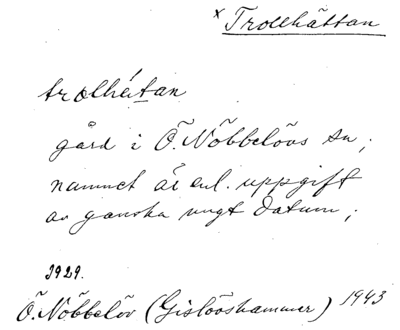 x Trollhättan
trolhätan
gård i Ö. Nöbbelövs sn;
namnet är enl. uppgift
av ganska ungt datum;
1929.
Ö. Nöbbelöv (Gislövshammar) 1943